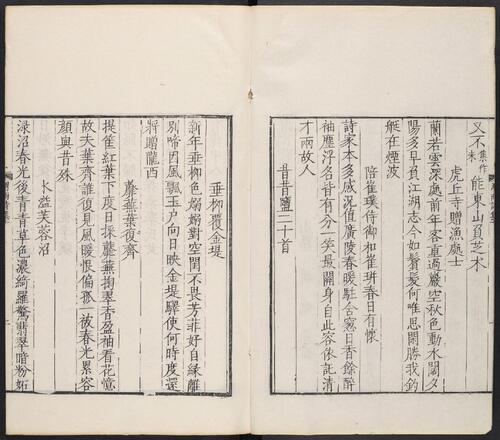 又不集作未能東山負芝朮
虎丘寺贈漁處士
蘭若雲深處前年客重過巖空秋色動水闊夕
陽多早負江湖志今如鬢髮何唯思閑勝我釣
艇在煙波
陪崔璞侍御和崔珏春日有懷
詩家本多感況值廣陵春暖駐含窻日香餘醉
袖塵浮名皆有分一笑最關身自此容依託清
才兩故人
昔昔鹽二十首
垂柳覆金堤
新年垂柳色嫋嫋對空閨不畏芳菲好自緣離
別啼因風飄玉户向日映金堤驛使何時度還
將贈隴西
蘼蕪葉復齊
提筐紅葉下度日採蘼蕪掬翠香盈袖看花憶
故夫葉齊誰復見風暖恨偏孤一被春光累容
顏與昔殊
水溢芙蓉沼
淥沼春光後青青草色濃綺羅驚翡翠暗粉妬